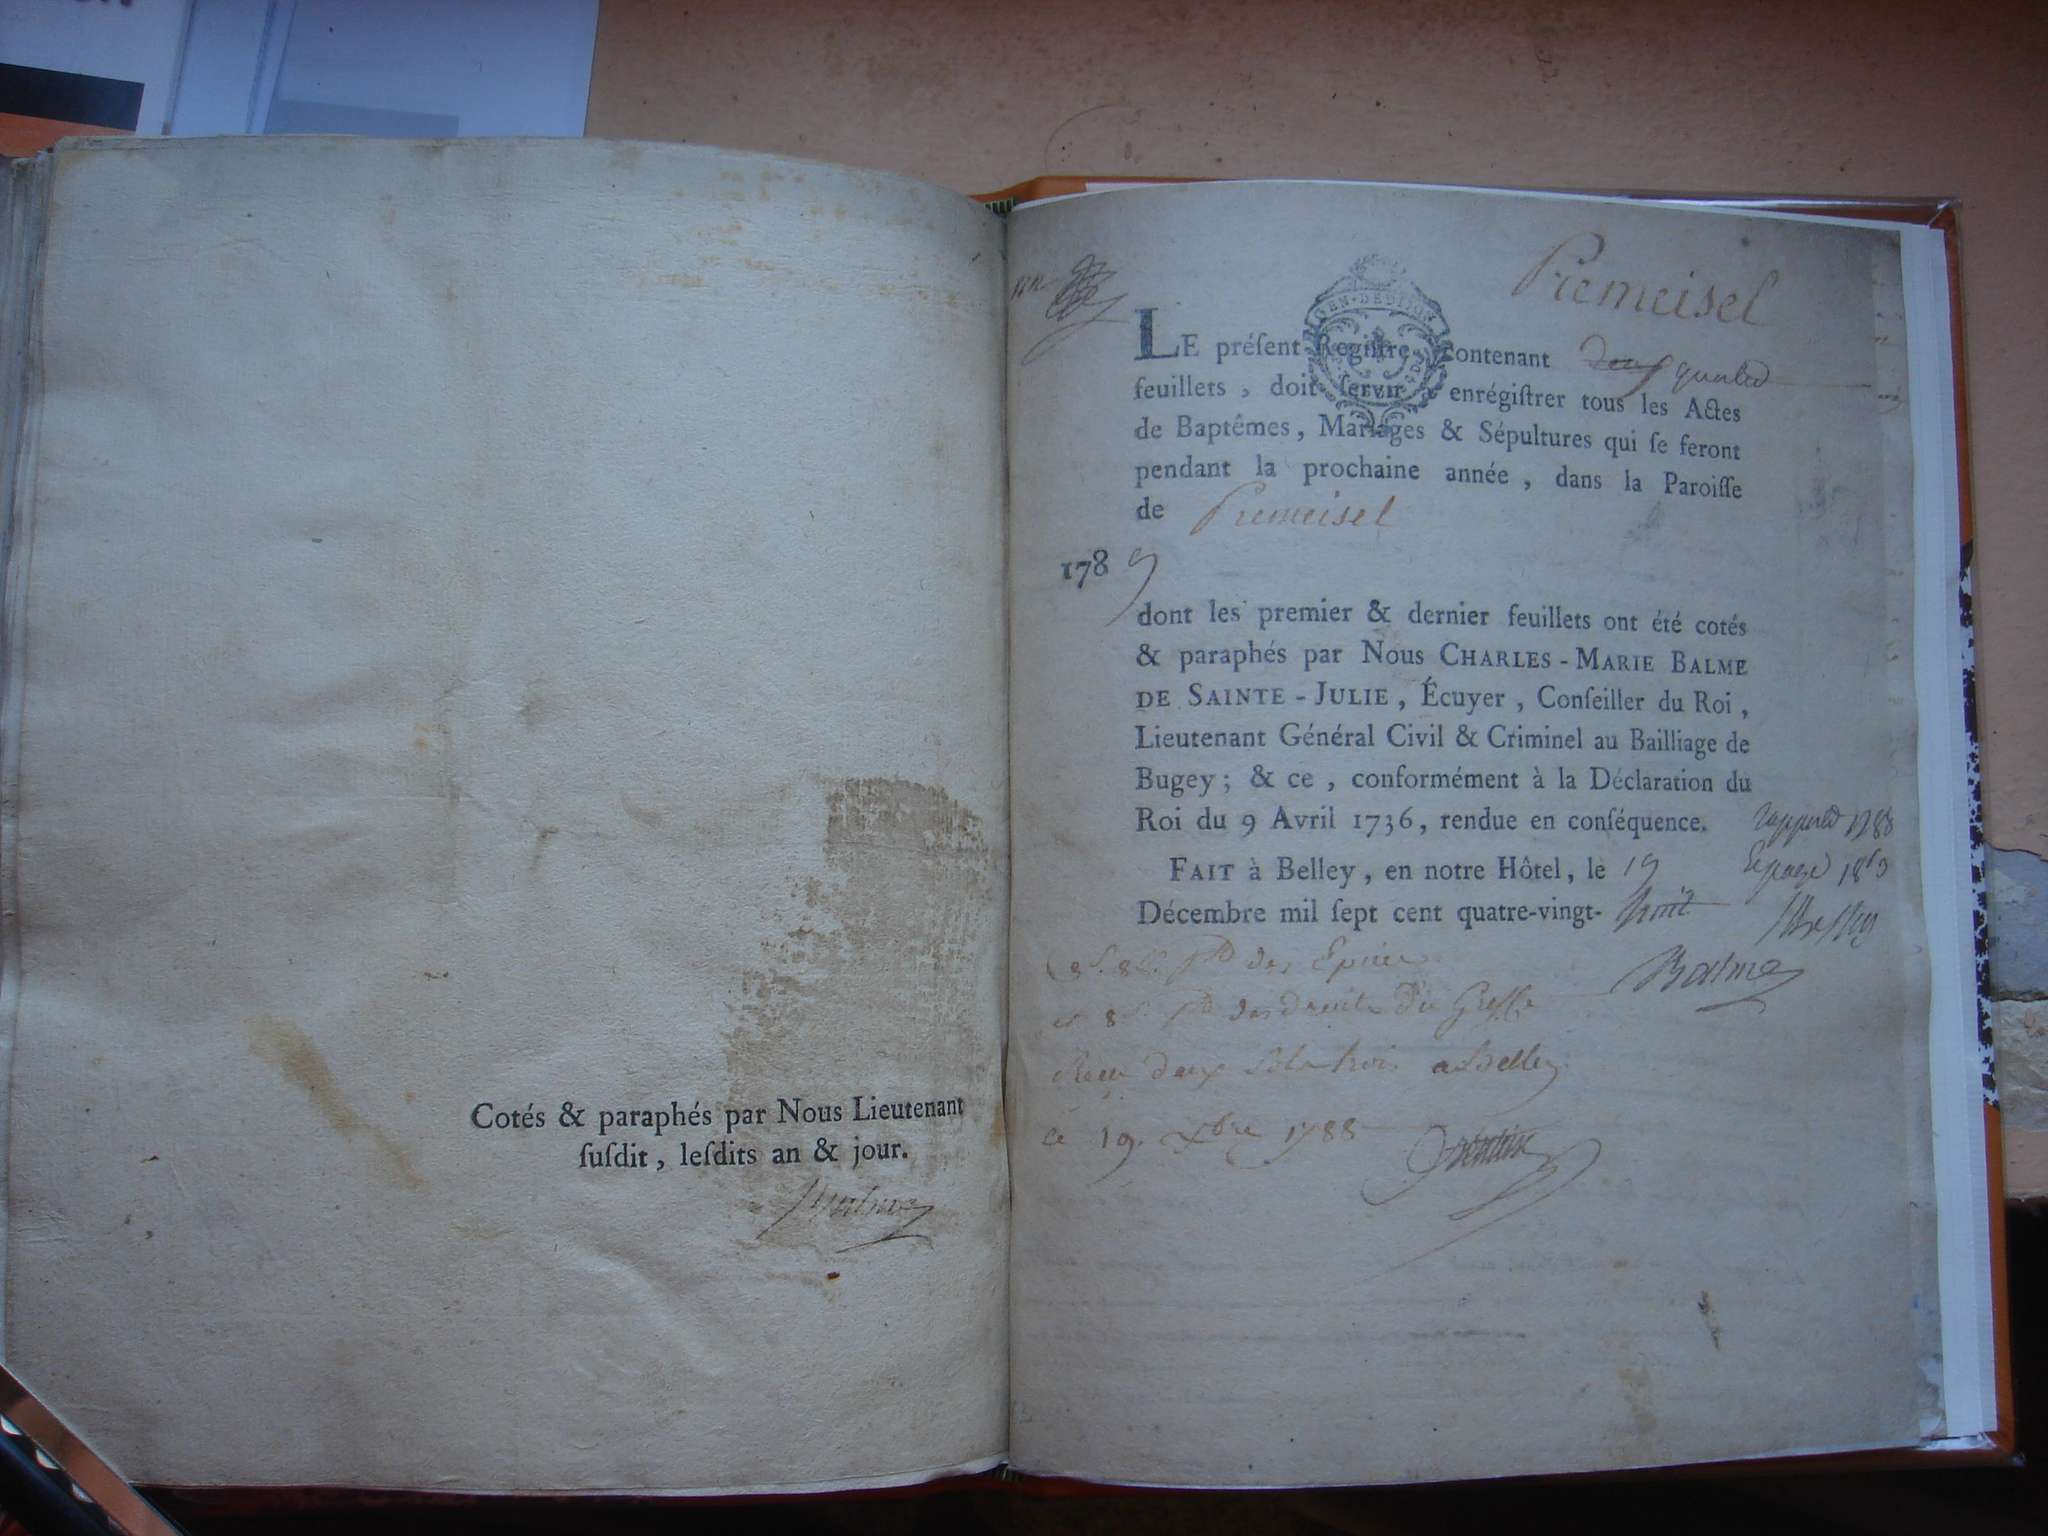 Cotés & paraphés par Nous Lieutenant
ſuſdit, leſdits an & jour.
Premeisel
LE préſent Regiſtre, contenant quatre
feuillets, doit ſervir à enrégiſtrer tous les Actes
de Baptêmes, Mariages & Sépultures qui ſe feront
pendant la prochaine année, dans la Paroiſſe
de Premeisel
1789
dont les premier & dernier feuillets ont été cotés
& paraphés par Nous CHARLES-MARIE BALME
DE SAINTE-JULIE, Écuyer, Conſeiller du Roi,
Lieutenant Général Civil & Criminel au Bailliage de
Bugey; & ce, conformément à la Déclaration du
Roi du 9 Avril 1736, rendue en conſéquence.
FAIT à Belley, en notre Hôtel, le 19
Décembre mil ſept cent quatre-vingt-huit
Balme
des Droits Du Greffe
a Belley
ce 19. xbre 1788